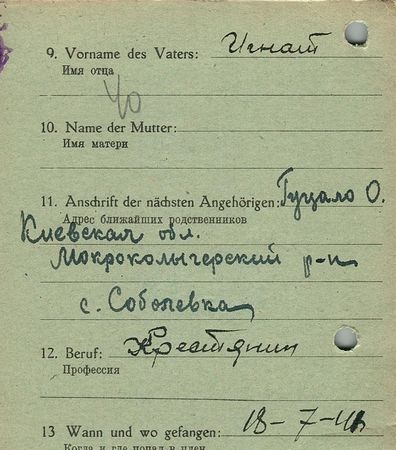 9. Vorname des Vaters: Игнат
Имя отца
40
10. Name der Mutter:
Имя матери
11. Anschrift der nächsten Angehörigen: Гуцало О.
Адрес ближайших родственников
Киевская обл.
Мокроколыгерский р-н
с. Соболевка
12. Beruf: Крестянин
Профессия
13 Wann und wo gefangen: 18-7-41
Когда и где попал в плен